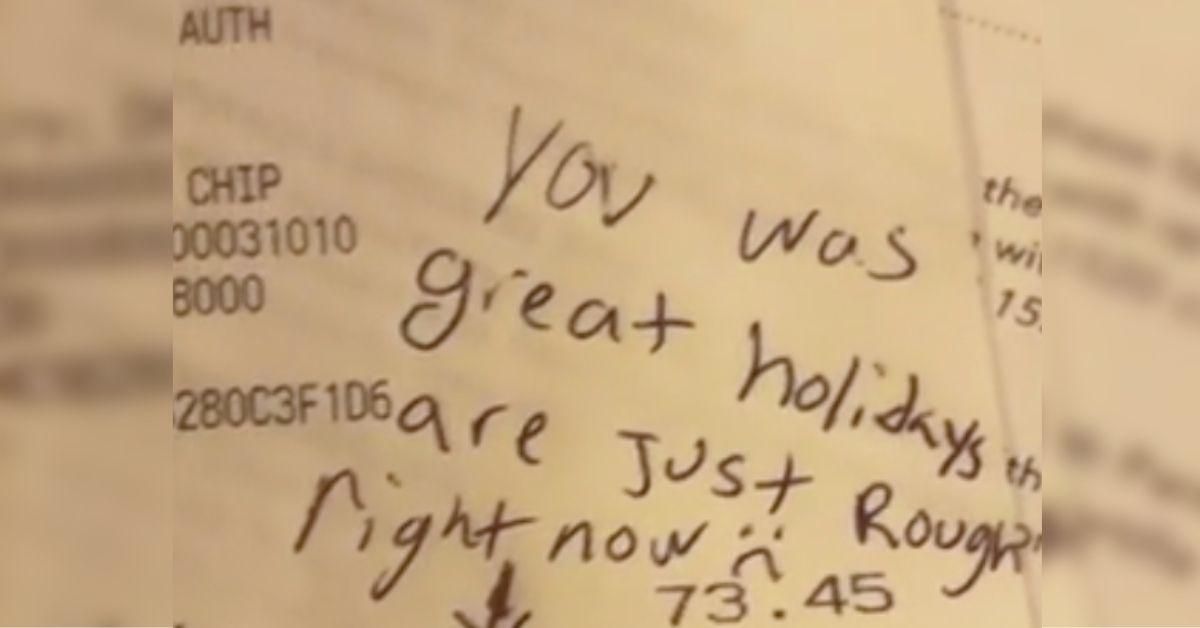 AUTH
You was
CHIP
the
00031010
great holidays
wi
8000
15
280C3F1D6
are just Rough
th
right now :(
73.45